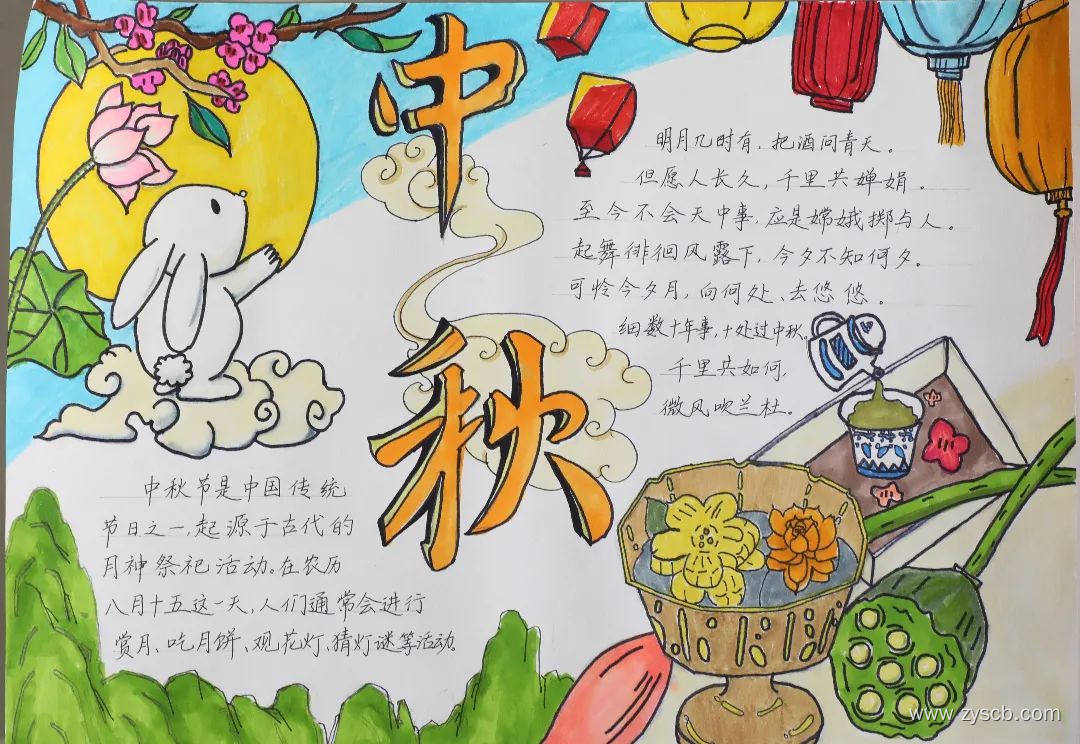 中秋
明月几时有,把酒问青天。
但愿人长久,千里共婵娟。
至今不会天中事,应是嫦娥掷与人。
起舞徘徊风露下,今夕不知何夕。
可怜今夕月,向何处、去悠悠。
细数十年事,十处过中秋。
千里共如何,
微风吹兰杜。
中秋节是中国传统
节日之一,起源于古代的
月神祭祀活动。在农历
八月十五这一天,人们通常会进行
赏月、吃月饼、观花灯、猜灯谜等活动。
中
www.zyscb.com